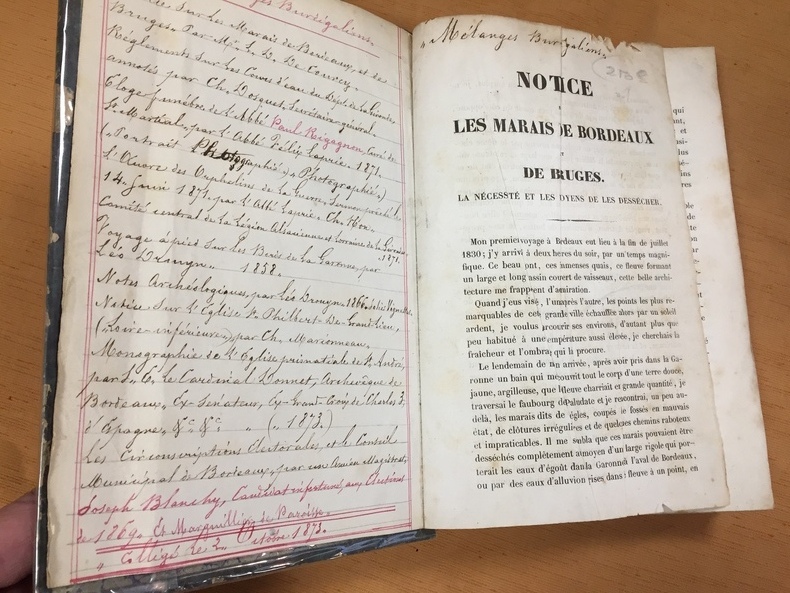 Burdigaliens.
Sur Les Marais de Bordeaux, et de
Bruges. Par M. L. D. De Courcy.
Réglements Sur Les Cours d'eau du Dépt. de la Gironde
annotés par Ch. Dosquet, Secrétaire général.
Eloge funèbre de l'Abbé Paul Reigagnon, Curé de
St. Martial, par l'Abbé Félix Laprie. 1871.
(Portrait Photographié, Photographie.)
L'Œuvre des Orphelins de la Guerre, Sermon prêché le
14. Juin 1871. par l'Abbé Laprie. Ch. Hon.
Comité central de la Région Alsacienne et Lorraine de la Gironde 1871.
Voyage à pied Sur les Bords de la Garonne, par
Léo Drouyn 1858.
Notes Archéologiques, par Léo Drouyn
Notice Sur L'Eglise St. Philbert-De-Grand-Lieu,
(Loire-inférieure), par Ch. Marionneau.
Monographie de l'Eglise primatiale de St. André,
par S. E. Le Cardinal Donnet, Archevêque de
Bordeaux, Ex-Senateur, Ex-Grand-Croix de Charles 3.
d'Espagne, &c. &c. " (1873.)
Les Circonscriptions Electorales, et le Conseil
Municipal de Bordeaux, par un Ancien Magistrat,
Joseph Blanchy, Candidat infortuné, aux Elections
de 1869. Et Marguillier de Paroisse.
" Colligé le 2 Octobre 1873.
"Mélanges Burdigaliens"
213
NOTICE
LES MARAIS DE BORDEAUX
DE BRUGES.
LA NÉCESSTÉ ET LES DYENS DE LES DESSÉCHER.
Mon premier voyage à Bordeaux eut lieu à la fin de juillet
1830; j'y arrivi à deux heures du soir, par un temps magni-
fique. Ce beau pont, ces immenses quais, ce fleuve formant
un large et long assin couvert de vaisseaux, cette belle archi-
tecture me frappent d'émiration.
Quand j'eus visé, l'un après l'autre, les points les plus re-
marquables de cette grande ville échauffée alors par un soleil
ardent, je voulus parcourir ses environs, d'autant plus que
peu habitué à une empérature aussi élevée, je cherchais la
fraîcheur et l'ombra qui li procure.
Le lendemain de mn arrivée, après avoir pris dans la Ga-
ronne un bain qui me couvrit tout le corp d'une terre douce,
jaune, argilleuse, que le fleuve charriait en grande quantité, je
traversai le faubourg de Paludate et je rencontrai, un peu au-
delà, les marais dits de égles, coupés de fossés en mauvais
état, de clôtures irrégulires et de quelques chemins raboteux
et impraticables. Il me sembla que ces marais pouvaient être
desséchés complètement au moyen d'un large rigole qui por-
terait les eaux d'égoût dans la Garonne à l'aval de Bordeaux,
ou par des eaux d'alluvion prises dans le fleuve à un point, en